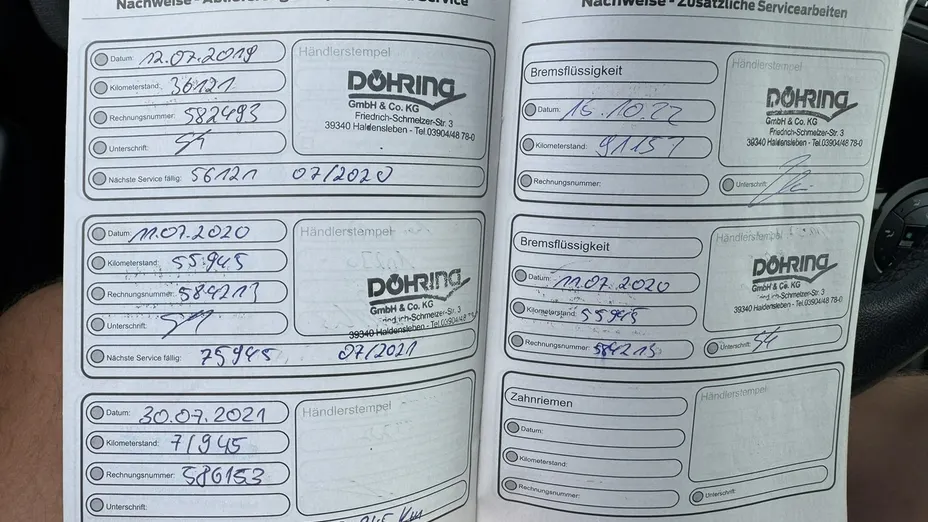 Nachweise - Ablieferung
Service
Datum: 12.07.2019
Kilometerstand: 36121
Rechnungsnummer: 582493
Unterschrift:
Nächste Service fällig: 56121 07/2020
Händlerstempel
DÖHRING
GmbH & Co. KG
Friedrich-Schmelzer-Str. 3
39340 Haldensleben - Tel.03904/48 78-0
Datum: 11.07.2020
Kilometerstand: 55945
Rechnungsnummer: 584213
Unterschrift:
Nächste Service fällig: 75945 07/2021
Händlerstempel
DÖHRING
GmbH & Co. KG
Friedrich-Schmelzer-Str. 3
39340 Haldensleben - Tel.03904/48 78
Datum: 30.07.2021
Kilometerstand: 71945
Rechnungsnummer: 586153
Unterschrift:
Händlerstempel
Km
Nachweise - Zusätzliche Servicearbeiten
Bremsflüssigkeit
Datum: 15.10.22
Kilometerstand: 91157
Rechnungsnummer:
Händlerstempel
DÖHRING
GmbH & Co. KG
Friedrich-Schmelzer-Str. 3
39340 Haldensleben - Tel.03904/48 78-0
Unterschrift:
Bremsflüssigkeit
Datum: 11.07.2020
Kilometerstand: 55945
Rechnungsnummer: 584213
Händlerstempel
DÖHRING
GmbH & Co. KG
Friedrich-Schmelzer-Str. 3
39340 Haldensleben - Tel.03904/48 78-0
Unterschrift:
Zahnriemen
Datum:
Kilometerstand:
Rechnungsnummer:
Händlerstempel
Unterschrift: